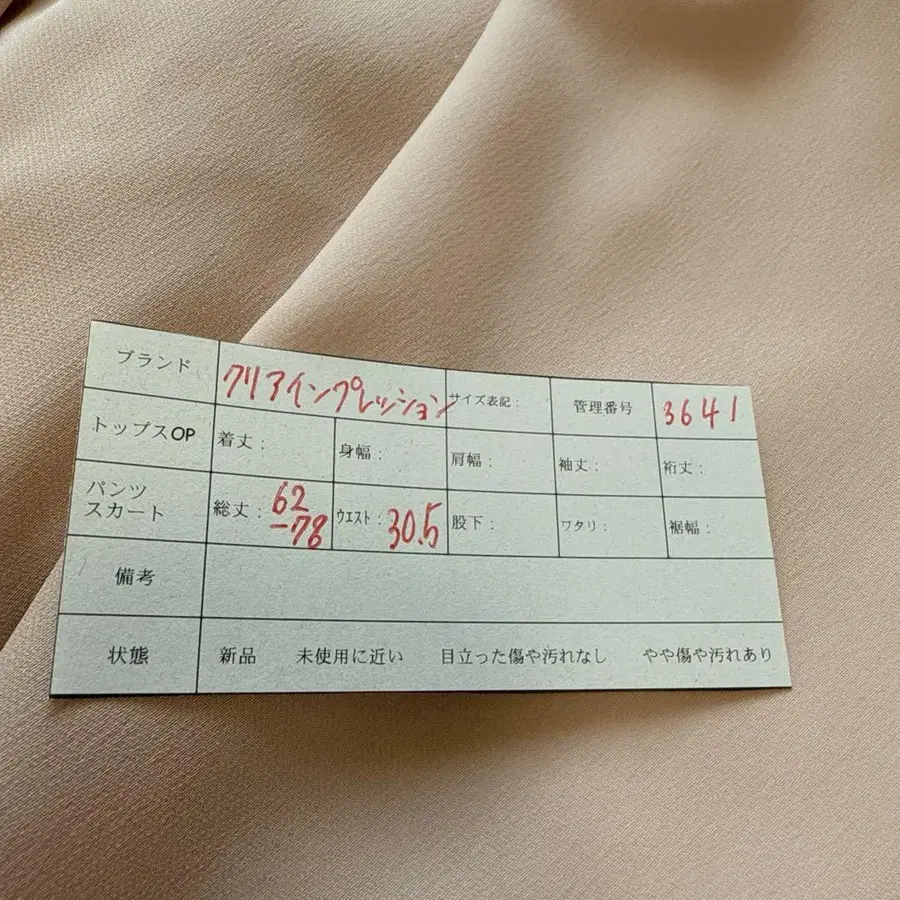 ブランド クリアインプレッション サイズ表記： 管理番号 3641
トップスOP 着丈： 身幅： 肩幅： 袖丈： 裄丈：
パンツ
スカート 総丈：62
-78 ウエスト：30.5 股下： ワタリ： 裾幅：
備考
状態 新品 未使用に近い 目立った傷や汚れなし やや傷や汚れあり